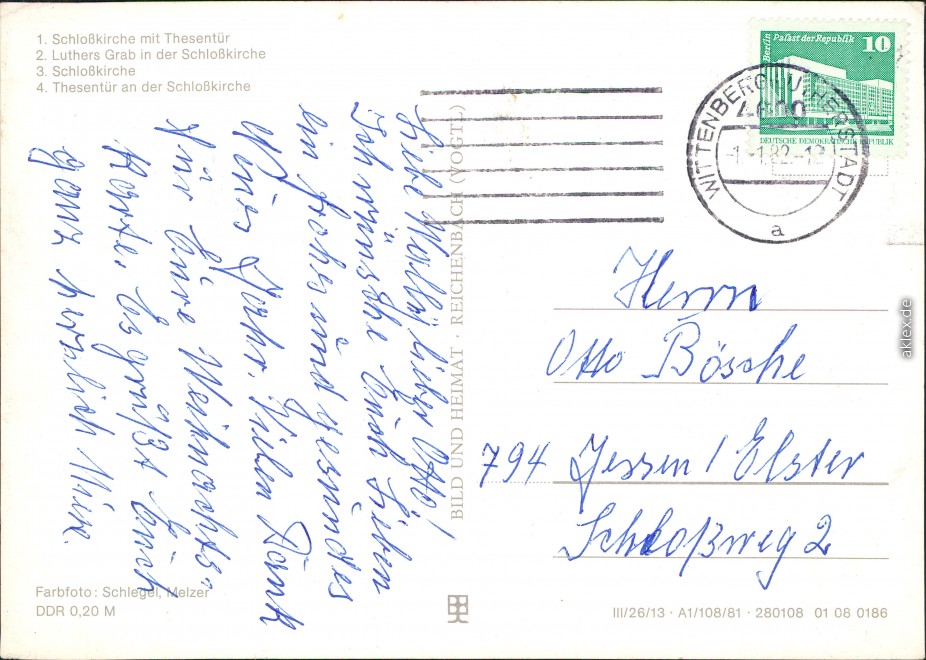 1. Schloßkirche mit Thesentür
2. Luthers Grab in der Schloßkirche
3. Schloßkirche
4. Thesentür an der Schloßkirche
Liebe Wally, lieber Otto!
Ich wünsche Euch Lieben
ein frohes und gesundes
Neues Jahr. Vielen Dank
für Eure Weihnachts-
karte. Es grüßt Euch
ganz herzlich
BILD UND HEIMAT · REICHENBACH (VOGTL)
Berlin Palast der Republik 10
DEUTSCHE DEMOKRATISCHE REPUBLIK
WITTENBERG LUTHERSTADT
4600
-1.-1.82.-12
a
Herrn
Otto Bösche
794 Jessen / Elster
Schloßweg 2
aklex.de
Farbfoto: Schlegel, Melzer
DDR 0,20 M
III/26/13 · A1/108/81 · 280108 01 08 0186